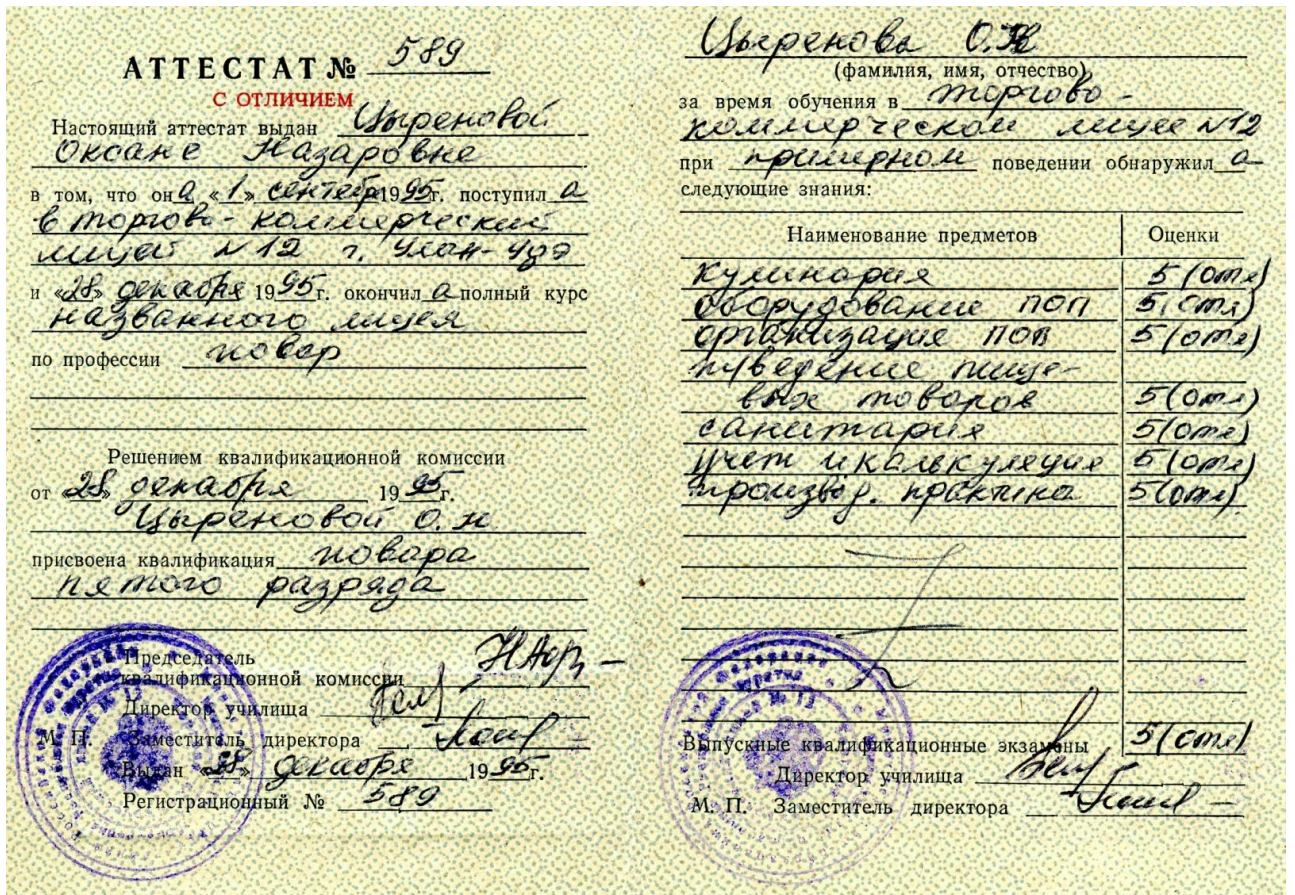 АТТЕСТАТ № 589
С ОТЛИЧИЕМ
Настоящий аттестат выдан Цыреновой
Оксане Назаровне
в том, что она «1» сентебр 1995г. поступила
в торгово-коммерческий
лицей №12 г. Улан-Удэ
и «28» декабря 1995г. окончила полный курс
названного лицея
по профессии повар
Решением квалификационной комиссии
от «28» декабря 1995г.
Цыреновой О.Н
присвоена квалификация повара
пятого разряда
Председатель
квалификационной комиссии
Директор училища
М. П. Заместитель директора
Выдан «28» декабря 1995г.
Регистрационный № 589
Цыренова О.Н
(фамилия, имя, отчество)
за время обучения в торгово-
коммерческом лицее №12
при примерном поведении обнаружила
следующие знания:
Наименование предметов Оценки
кулинария 5(отл)
оборудование ПОП 5(отл)
организация ПОП 5(отл)
т/ведение пище-
вых товаров 5(отл)
санитария 5(отл)
учет и калькуляция 5(отл)
производ. практика 5(отл)
Выпускные квалификационные экзамены 5(отл)
Директор училища
М. П. Заместитель директора